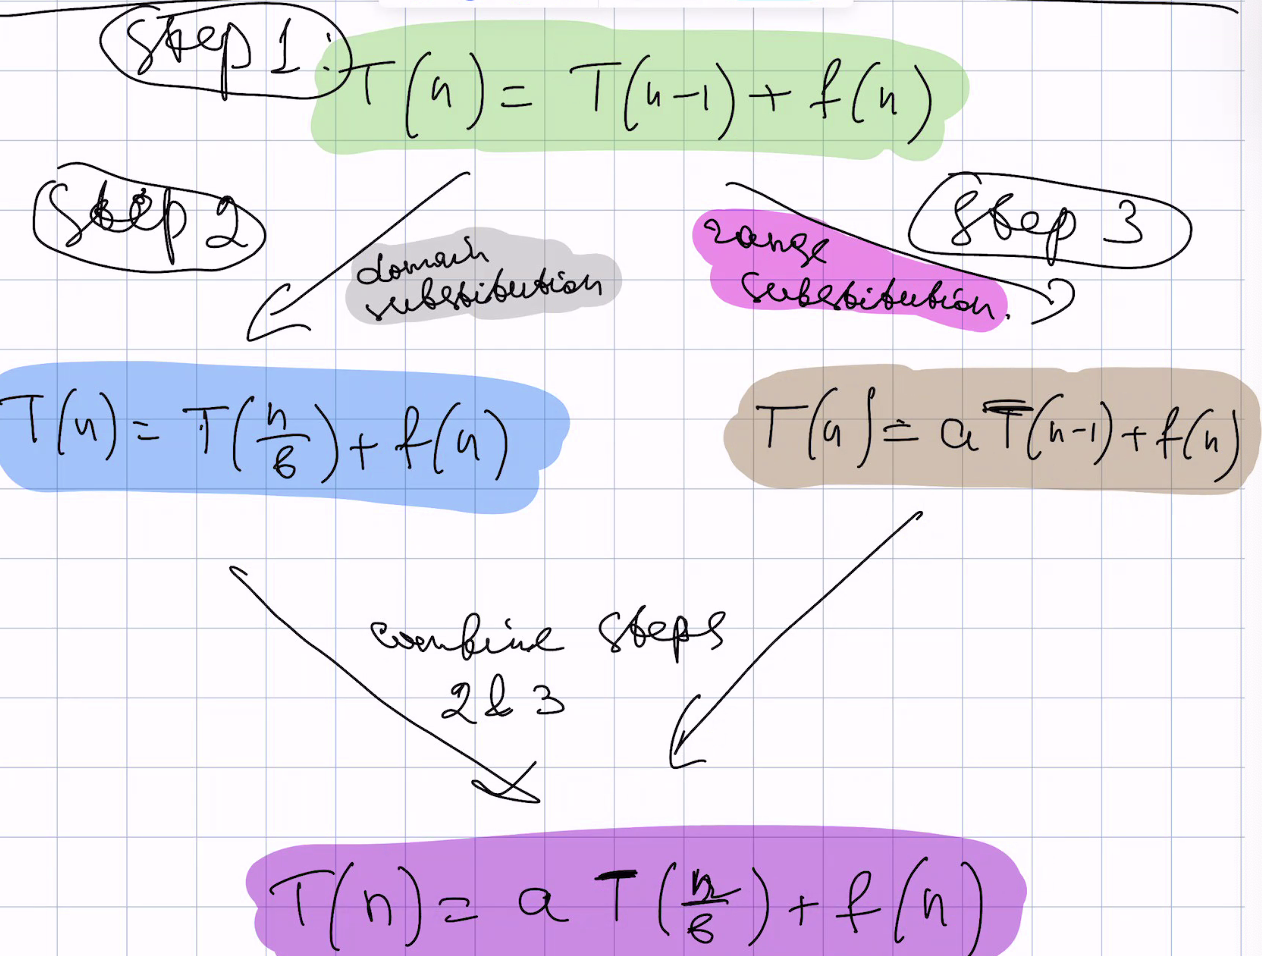 Step 1:
T(n) = T(n-1) + f(n)
Step 2
Step 3
domain
substitution
range
substitution.
T(n) = T(n/b) + f(n)
T(n) = a T(n-1) + f(n)
combine steps
2 & 3
T(n) = a T(n/b) + f(n)